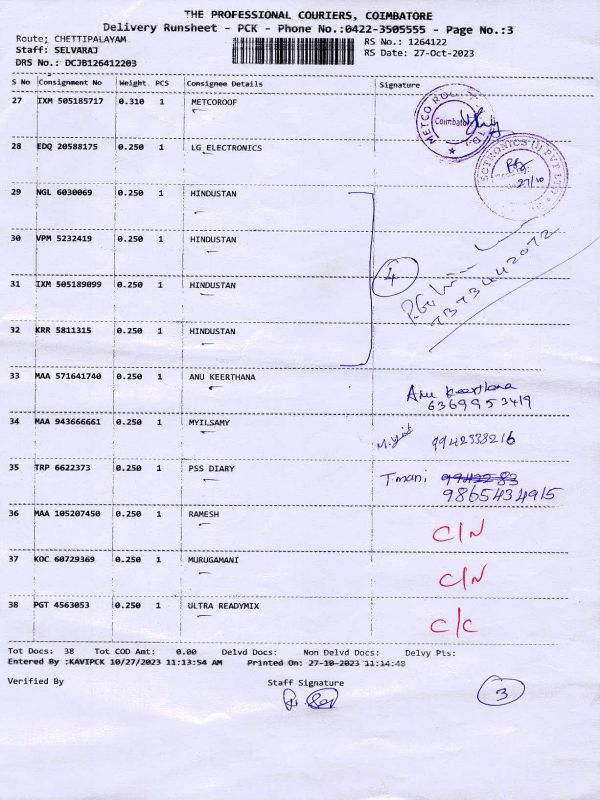 THE PROFESSIONAL COURIERS, COIMBATORE
Delivery Runsheet - PCK - Phone No.:0422-3505555 - Page No.:3
Route; CHETTIPALAYAM
RS No.: 1264122
Staff: SELVARAJ
RS Date: 27-Oct-2023
DRS No.: DCJB126412203
S No Consignment No Weight PCS Consignee Details Signature
27 IXM 505185717 0.310 1 METCOROOF
METCO Coimbatore
28 EDQ 20588175 0.250 1 LG ELECTRONICS
27/10
29 NGL 6030069 0.250 1 HINDUSTAN
30 VPM 5232419 0.250 1 HINDUSTAN
31 IXM 505189099 0.250 1 HINDUSTAN
4
32 KRR 5811315 0.250 1 HINDUSTAN
33 MAA 571641740 0.250 1 ANU KEERTHANA
Anu Keerthana
6369953419
34 MAA 943666661 0.250 1 MYILSAMY
9942338216
35 TRP 6622373 0.250 1 PSS DIARY
Tmani
9865434915
36 MAA 105207450 0.250 1 RAMESH C/N
37 KOC 60729369 0.250 1 MURUGAMANI C/N
38 PGT 4563053 0.250 1 ULTRA READYMIX C/C
Tot Docs: 38 Tot COD Amt: 0.00 Delvd Docs: Non Delvd Docs: Delvy Pts:
Entered By :KAVIPCK 10/27/2023 11:13:54 AM Printed On: 27-10-2023 11:14:48
Verified By Staff Signature
3